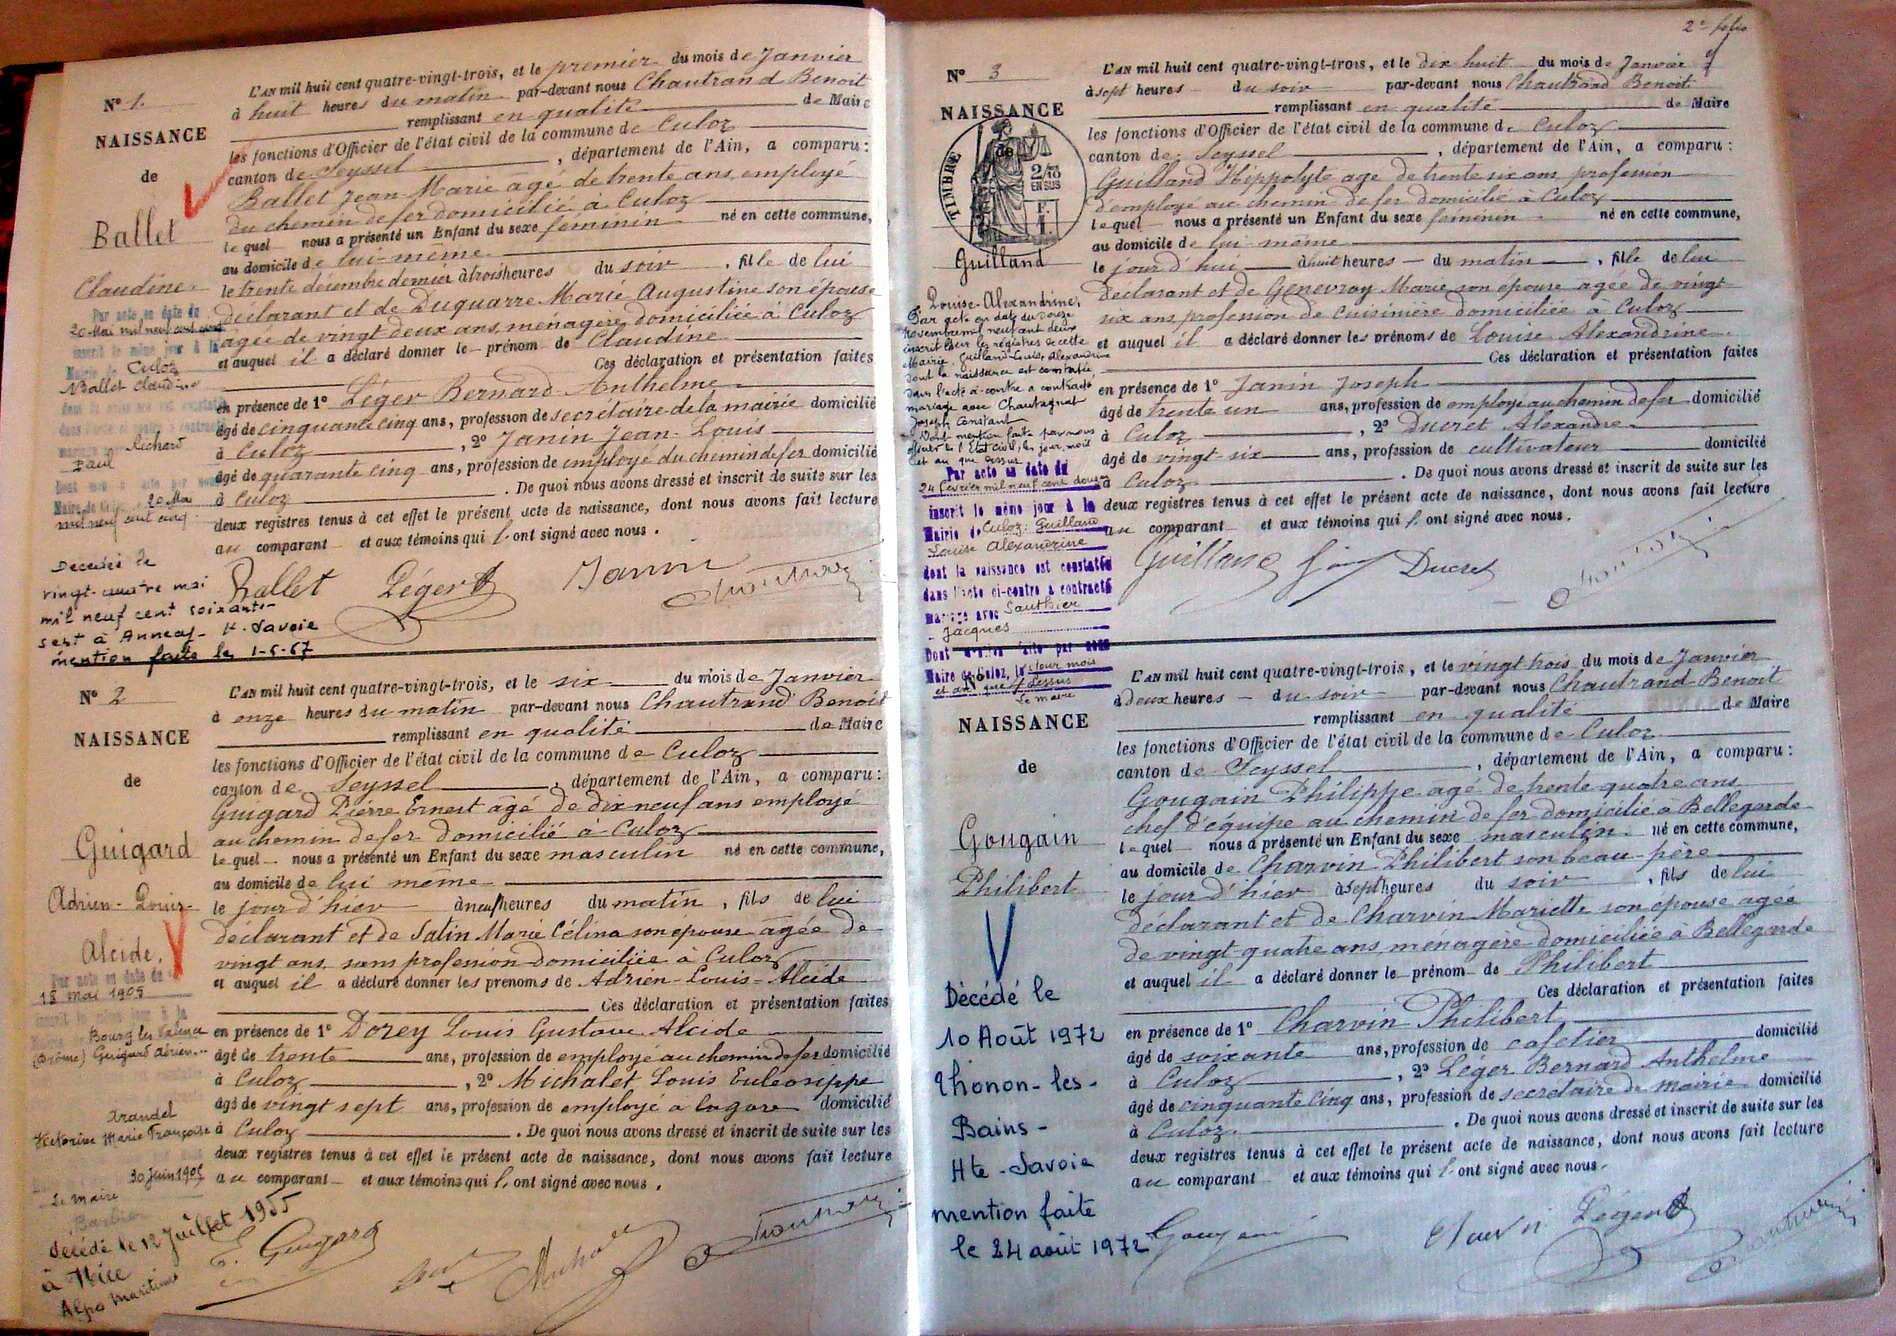 N° 1.
NAISSANCE
de
Ballet
Claudine.
Par acte en date du
20 Mai mil neuf cent cinq
inscrit le même jour à la
Mairie de Culoz
Ballet Claudine
dont la naissance est constatée
dans l'acte ci-contre a contracté
mariage avec Richard
Paul
20 Mai
mil neuf cent cinq
Décédée le
vingt-quatre mai
mil neuf cent soixante-
sept à Annecy - Hte-Savoie
mention faite le 1-6-67
L'AN mil huit cent quatre-vingt-trois, et le premier du mois de Janvier
à huit heures du matin par-devant nous Chautrand Benoit
remplissant en qualité de Maire
les fonctions d'Officier de l'état civil de la commune de Culoz
canton de Seyssel, département de l'Ain, a comparu :
Ballet Jean Marie âgé de trente ans employé
du chemin de fer domicilié à Culoz
lequel nous a présenté un Enfant du sexe féminin né en cette commune,
au domicile de lui-même
le trente décembre dernier à trois heures du soir, fille de lui
déclarant et de Duquarre Marie Augustine son épouse
agée de vingt deux ans, ménagère domiciliée à Culoz
et auquel il a déclaré donner le prénom de Claudine
Ces déclaration et présentation faites
en présence de 1° Léger Bernard Anthelme
âgé de cinquante cinq ans, profession de secrétaire de la mairie domicilié
à Culoz, 2° Janin Jean-Louis
âgé de quarante cinq ans, profession de employé du chemin de fer domicilié
à Culoz. De quoi nous avons dressé et inscrit de suite sur les
deux registres tenus à cet effet le présent acte de naissance, dont nous avons fait lecture
au comparant et aux témoins qui l'ont signé avec nous.
Ballet Léger Janin
N° 2
NAISSANCE
de
Guigard
Adrien-Louis-
Alcide.
Par acte en date du
18 mai 1905
inscrit le même jour à la
Bourg les Valence
(Drôme) Guigard Adrien
Victorine Marie Françoise
30 juin 1905
Le maire
Décédé le 12 Juillet 1955
à Nice
Alpes Maritimes
L'AN mil huit cent quatre-vingt-trois, et le six du mois de Janvier
à onze heures du matin par-devant nous Chautrand Benoit
remplissant en qualité de Maire
les fonctions d'Officier de l'état civil de la commune de Culoz
canton de Seyssel, département de l'Ain, a comparu :
Guigard Pierre Ernest âgé de dix neuf ans employé
au chemin de fer domicilié à Culoz
lequel nous a présenté un Enfant du sexe masculin né en cette commune,
au domicile de lui même
le jour d'hier à neuf heures du matin, fils de lui
déclarant et de Satin Marie Célina son épouse agée de
vingt ans, sans profession domiciliée à Culoz
et auquel il a déclaré donner les prenoms de Adrien-Louis-Alcide
Ces déclaration et présentation faites
en présence de 1° Dorey Louis Gustave Alcide
âgé de trente ans, profession de employé au chemin de fer domicilié
à Culoz, 2° Michalet Louis Euleosippe
âgé de vingt sept ans, profession de employé à la gare domicilié
à Culoz. De quoi nous avons dressé et inscrit de suite sur les
deux registres tenus à cet effet le présent acte de naissance, dont nous avons fait lecture
au comparant et aux témoins qui l'ont signé avec nous.
E. Guigard
2e folio
N° 3
NAISSANCE
de
TIMBRE
2/10
EN SUS
Guilland
Louise-Alexandrine,
Par acte en date du douze
Novembre mil neuf cent deux
inscrit sur les registres de cette
Mairie, Guilland Louise Alexandrine
dont la naissance est constatée
dans l'acte ci-contre a contracté
mariage avec Chautagnat
Joseph Constant
Dont mention faite par nous
officier de l'état civil, les jour, mois
et an que dessus
Par acte en date du
24 février mil neuf cent douze
inscrit le même jour à la
Mairie de Culoz : Guilland
Louise Alexandrine
dont la naissance est constatée
dans l'acte ci-contre a contracté
mariage avec Gauthier
Jacques
Dont mention faite par nous
Maire de Culoz, les jour mois
et an que dessus
Le maire
L'AN mil huit cent quatre-vingt-trois, et le dix huit du mois de Janvier
à sept heures du soir par-devant nous Chautrand Benoit
remplissant en qualité de Maire
les fonctions d'Officier de l'état civil de la commune de Culoz
canton de Seyssel, département de l'Ain, a comparu :
Guilland Hippolyte age de trente six ans profession
d'employé au chemin de fer domicilié à Culoz
lequel nous a présenté un Enfant du sexe féminin né en cette commune,
au domicile de lui-même
le jour d'hui à huit heures du matin, fille de lui
déclarant et de Genevray Marie son épouse agée de vingt
six ans, profession de cuisinière domiciliée à Culoz
et auquel il a déclaré donner les prénoms de Louise Alexandrine
Ces déclaration et présentation faites
en présence de 1° Janin Joseph
âgé de trente un ans, profession de employé au chemin de fer domicilié
à Culoz, 2° Ducret Alexandre
âgé de vingt-six ans, profession de cultivateur domicilié
à Culoz. De quoi nous avons dressé et inscrit de suite sur les
deux registres tenus à cet effet le présent acte de naissance, dont nous avons fait lecture
au comparant et aux témoins qui l'ont signé avec nous.
Guilland Ducret
N°
NAISSANCE
de
Gougain
Philibert
Décédé le
10 Août 1972
Thonon-les-
Bains-
Hte-Savoie
mention faite
le 24 août 1972
L'AN mil huit cent quatre-vingt-trois, et le vingt trois du mois de Janvier
à deux heures du soir par-devant nous Chautrand Benoit
remplissant en qualité de Maire
les fonctions d'Officier de l'état civil de la commune de Culoz
canton de Seyssel, département de l'Ain, a comparu :
Gougain Philippe agé de trente quatre ans
chef d'équipe au chemin de fer domicilié à Bellegarde
lequel nous a présenté un Enfant du sexe masculin né en cette commune,
au domicile de Charvin Philibert son beau-père
le jour d'hier à sept heures du soir, fils de lui
déclarant et de Charvin Mariette son epouse agée
de vingt quatre ans, ménagère domiciliée à Bellegarde
et auquel il a déclaré donner le prénom de Philibert
Ces déclaration et présentation faites
en présence de 1° Charvin Philibert
âgé de soixante ans, profession de cafetier domicilié
à Culoz, 2° Léger Bernard Anthelme
âgé de cinquante cinq ans, profession de secrétaire de mairie domicilié
à Culoz. De quoi nous avons dressé et inscrit de suite sur les
deux registres tenus à cet effet le présent acte de naissance, dont nous avons fait lecture
au comparant et aux témoins qui l'ont signé avec nous.
Gougain Charvin Léger